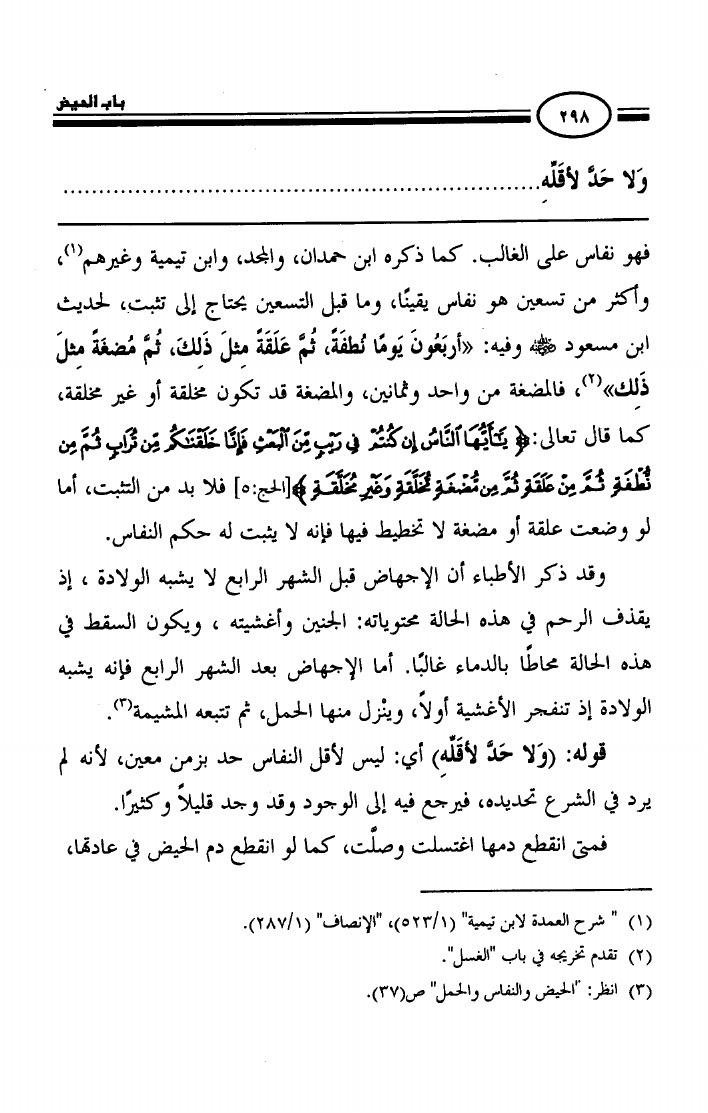 باب الحيض
٢٩٨
وَلا حَدَّ لأقَلِّهِ............................................................
فهو نفاس على الغالب. كما ذكره ابن حمدان، والمجد، وابن تيمية وغيرهم(١)،
وأكثر من تسعين هو نفاس يقينًا، وما قبل التسعين يحتاج إلى تثبت، لحديث
ابن مسعود ﷺ وفيه: «أربَعُونَ يَومًا نُطفَةً، ثُمَّ عَلَقَةً مِثلَ ذَلِكَ، ثُمَّ مُضغَةً مِثلَ
ذَلِك»(٢)، فالمضغة من واحد وثمانين، والمضغة قد تكون مخلقة أو غير مخلقة،
كما قال تعالى: ﴿ يَٰٓأَيُّهَا ٱلنَّاسُ إِن كُنتُمْ فِى رَيْبٍ مِّنَ ٱلْبَعْثِ فَإِنَّا خَلَقْنَٰكُم مِّن تُرَابٍ ثُمَّ مِن
نُّطْفَةٍ ثُمَّ مِنْ عَلَقَةٍ ثُمَّ مِن مُّضْغَةٍ مُّخَلَّقَةٍ وَغَيْرِ مُخَلَّقَةٍ ﴾[الحج:٥] فلا بد من التثبت، أما
لو وضعت علقة أو مضغة لا تخطيط فيها فإنه لا يثبت له حكم النفاس.
وقد ذكر الأطباء أن الإجهاض قبل الشهر الرابع لا يشبه الولادة ، إذ
يقذف الرحم في هذه الحالة محتوياته: الجنين وأغشيته ، ويكون السقط في
هذه الحالة محاطًا بالدماء غالبًا. أما الإجهاض بعد الشهر الرابع فإنه يشبه
الولادة إذ تنفجر الأغشية أولاً، وينْزل منها الحمل، ثم تتبعه المشيمة(٣).
قوله: (وَلا حَدَّ لأقَلِّهِ) أي: ليس لأقل النفاس حد بزمن معين، لأنه لم
يرد في الشرع تحديده، فيرجع فيه إلى الوجود وقد وجد قليلاً وكثيرًا.
فمتى انقطع دمها اغتسلت وصلَّت، كما لو انقطع دم الحيض في عادتها،
(١) " شرح العمدة لابن تيمية" (٥٢٣/١)، "الإنصاف" (٢٨٧/١).
(٢) تقدم تخريجه في باب "الغسل".
(٣) انظر: "الحيض والنفاس والحمل" ص(٣٧).